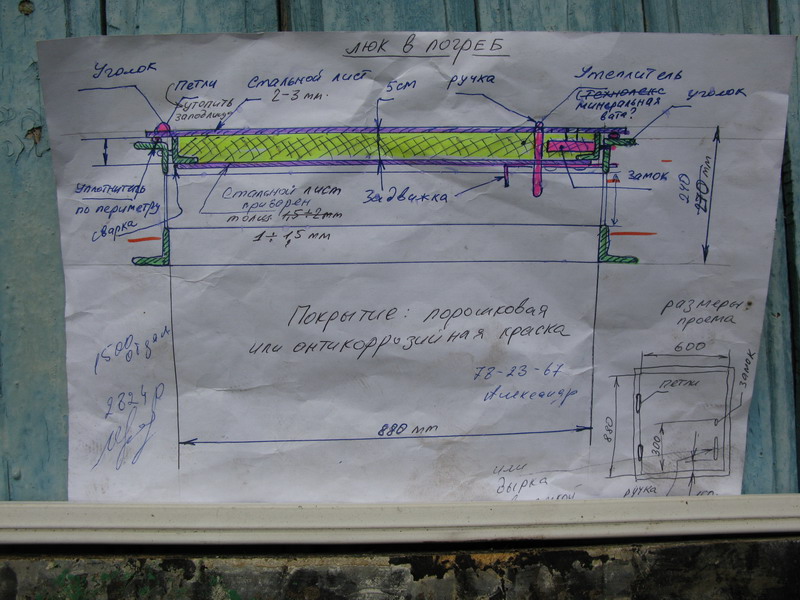 ЛЮК В ПОГРЕБ
Уголок
Петли
утопить
заподлицо
Стальной лист
2-3 мм.
5см
ручка
Утеплитель
(технопекс
минеральная
вата?
уголок
Уплотнитель
по периметру
сварка
Стальной лист
приварен
толщ 1,5÷2мм
1÷1,5 мм
Задвижка
Замок
240
270 мм
Покрытие: порошковая
или антикоррозийная краска
78-23-67
Александр
1500 отдал
2824р
880 мм
размеры
проема
600
петли
замок
880
300
ручка
или
дырка